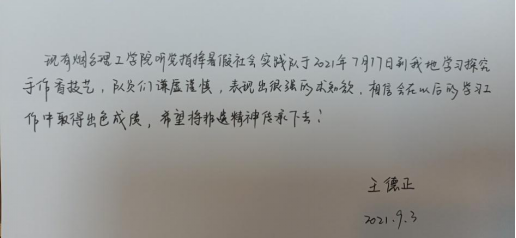 现有烟台理工学院听党指挥暑假社会实践队于2021年7月17日到我地学习探究
手作香技艺，队员们谦虚谨慎，表现出很强的求知欲，相信会在以后的学习工
作中取得出色成绩，希望将非遗精神传承下去！
王德正
2021.9.3